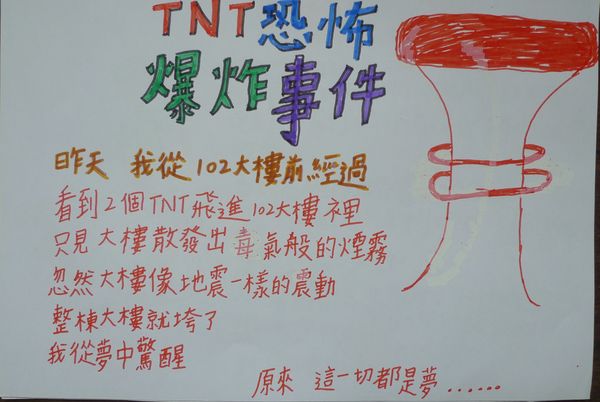 TNT恐怖
爆炸事件
昨天 我從102大樓前經過
看到2個TNT飛進102大樓裡
只見大樓散發出毒氣般的煙霧
忽然大樓像地震一樣的震動
整棟大樓就垮了
我從夢中驚醒
原來 這一切都是夢......